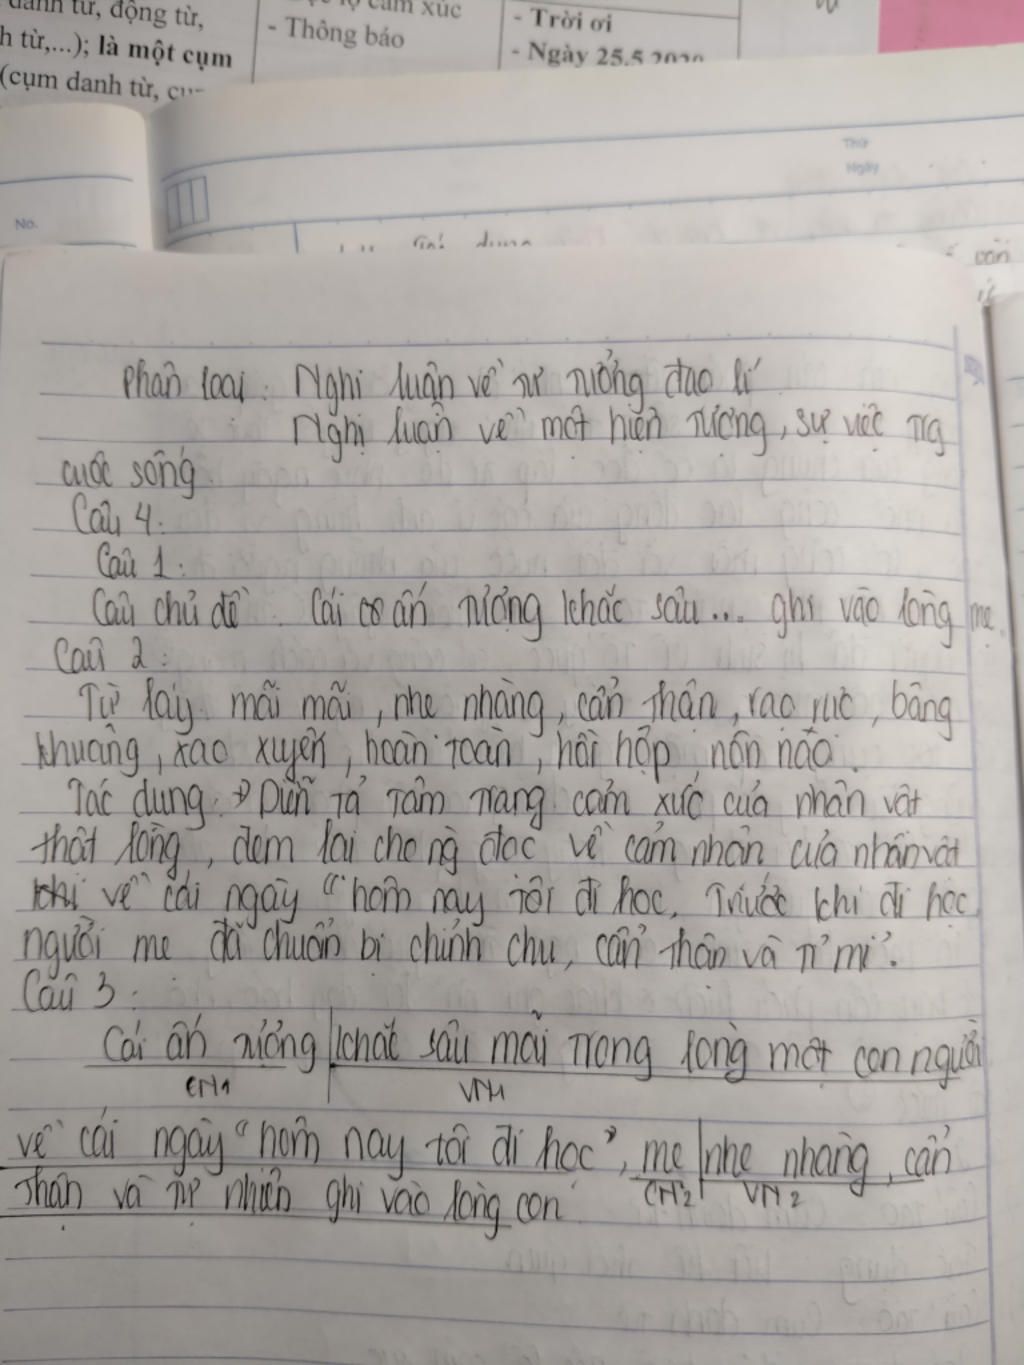 danh từ, động từ,
h từ,...); là một cụm
(cụm danh từ,
cảm xúc
- Thông báo
- Trời ơi
- Ngày 25.5.2020
Thứ
Ngày
No.
Phân loại: Nghị luận về tư tưởng đạo lí
Nghị luận về một hiện tượng, sự việc trg
cuộc sống
Câu 4:
Câu 1:
Câu chủ đề: Cái cơ ấn tượng khắc sâu... ghi vào lòng mẹ.
Câu 2:
Từ láy: mãi mãi, nhẹ nhàng, cẩn thận, rạo rực, bâng
khuâng, xao xuyến, hoàn toàn, hồi hộp, nôn nao.
Tác dụng: → Diễn tả tâm trạng cảm xúc của nhân vật
thật lòng, đem lại cho ng đọc về cảm nhận của nhân vật
khi về cái ngày "hôm nay tôi đi học. Trước khi đi học,
người mẹ đã chuẩn bị chỉnh chu, cẩn thận và tỉ mỉ.
Câu 3:
Cái ấn tượng | khắc sâu mãi trong lòng một con người
CN1 VN1
về cái ngày "hôm nay tôi đi học", mẹ | nhẹ nhàng, cẩn
thận và tự nhiên ghi vào lòng con
CN2 VN2